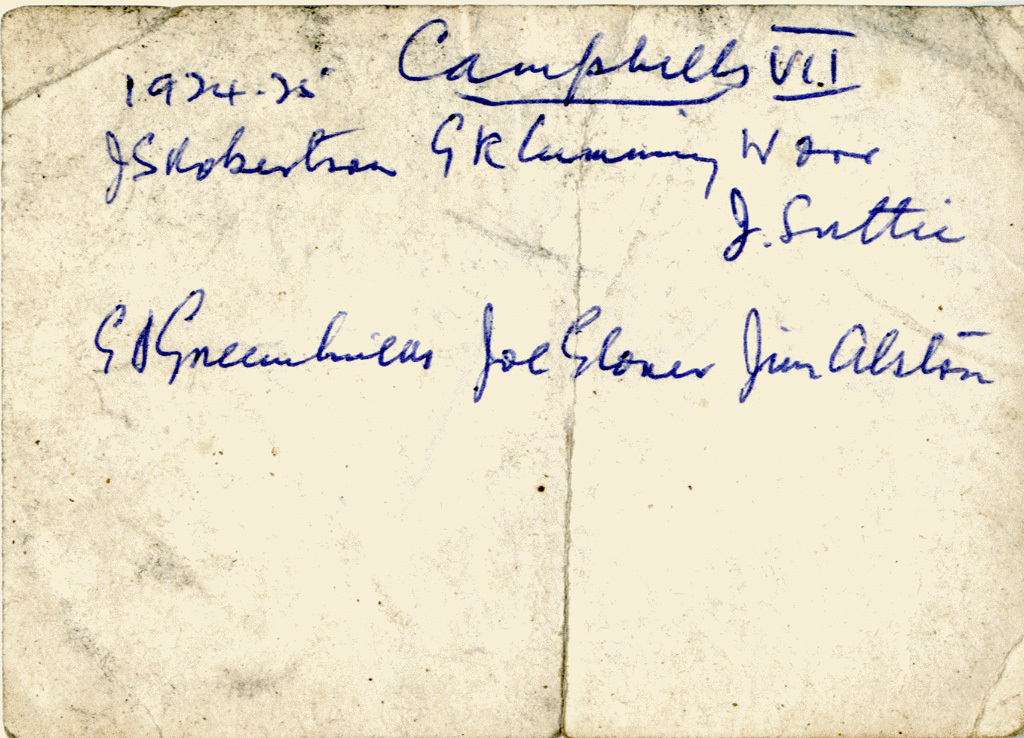 1924-25 Campbells VI.1
J S Robertson G K Cumming W Orr
J. Suttie
G Greenhill Joe Glover Jim Alston